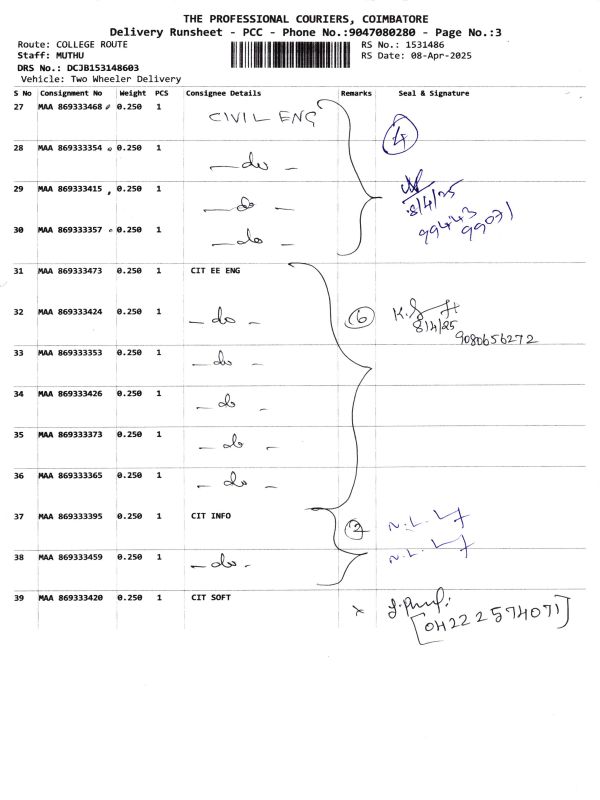 THE PROFESSIONAL COURIERS, COIMBATORE
Delivery Runsheet - PCC - Phone No.:9047080280 - Page No.:3
Route: COLLEGE ROUTE RS No.: 1531486
Staff: MUTHU RS Date: 08-Apr-2025
DRS No.: DCJB153148603
Vehicle: Two Wheeler Delivery
S No Consignment No Weight PCS Consignee Details Remarks Seal & Signature
27 MAA 869333468 0.250 1 CIVIL ENG
4
28 MAA 869333354 0.250 1 - do -
29 MAA 869333415 0.250 1 - do -
8/4/25
99443
99071
30 MAA 869333357 0.250 1 - do -
31 MAA 869333473 0.250 1 CIT EE ENG
32 MAA 869333424 0.250 1 - do - 6
8/4/25
9080656272
33 MAA 869333353 0.250 1 - do -
34 MAA 869333426 0.250 1 - do -
35 MAA 869333373 0.250 1 - do -
36 MAA 869333365 0.250 1 - do -
37 MAA 869333395 0.250 1 CIT INFO 2
38 MAA 869333459 0.250 1 - do -
39 MAA 869333420 0.250 1 CIT SOFT
[0422 2574071]